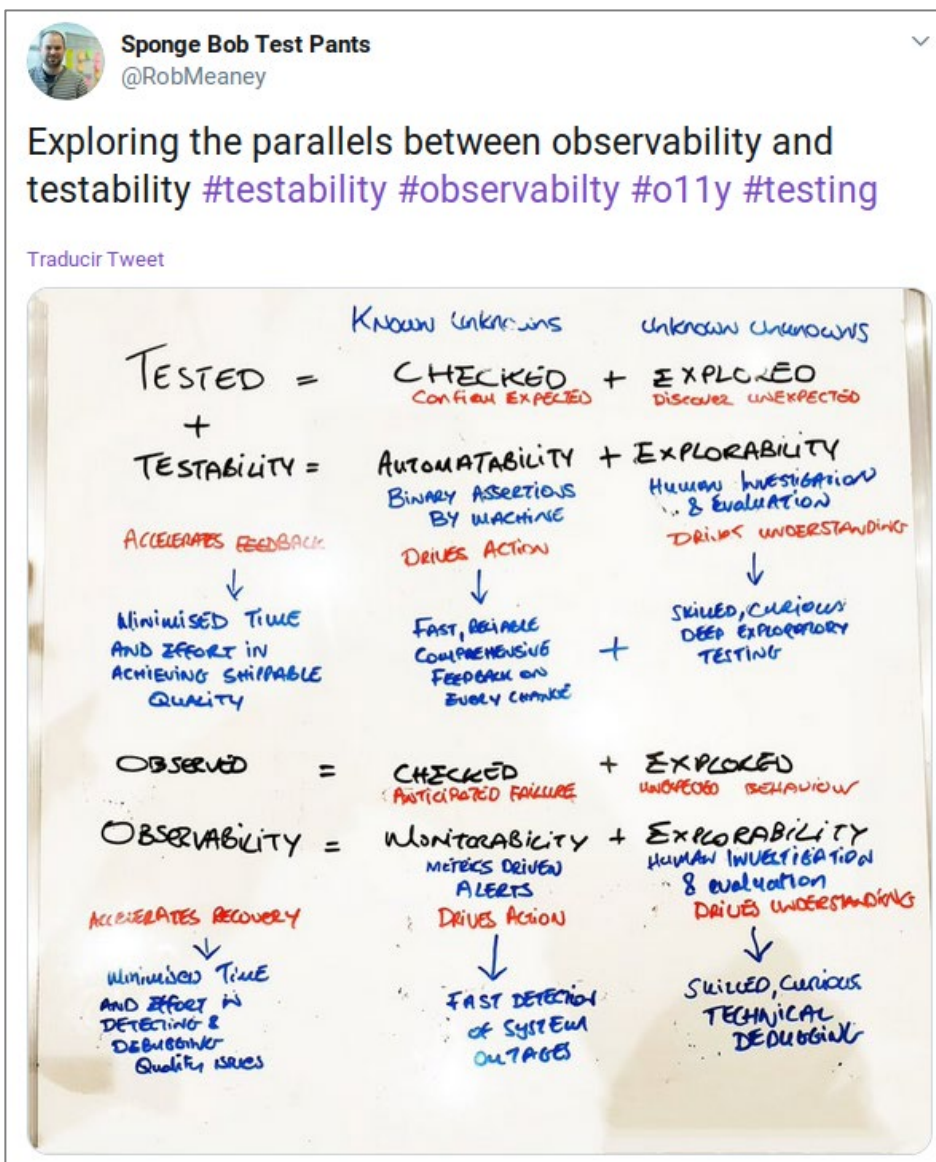 Sponge Bob Test Pants
@RobMeaney
Exploring the parallels between observability and
testability #testability #observabilty #o11y #testing
Traducir Tweet
Known Unknowns
Unknown Unknowns
TESTED = CHECKED + EXPLORED
Confirm EXPECTED
Discover UNEXPECTED
+
TESTABILITY = AUTOMATABILITY + EXPLORABILITY
BINARY ASSERTIONS
BY MACHINE
HUMAN INVESTIGATION
& Evaluation
ACCELERATES FEEDBACK
DRIVES ACTION
DRIVES UNDERSTANDING
MINIMISED TIME
AND EFFORT IN
ACHIEVING SHIPPABLE
QUALITY
FAST, RELIABLE
COMPREHENSIVE
FEEDBACK ON
EVERY CHANGE
+
SKILLED, CURIOUS
DEEP EXPLORATORY
TESTING
OBSERVED = CHECKED + EXPLORED
ANTICIPATED FAILURE
UNEXPECTED BEHAVIOUR
OBSERVABILITY = MONITORABILITY + EXPLORABILITY
METRICS DRIVEN
ALERTS
HUMAN INVESTIGATION
& evaluation
ACCELERATES RECOVERY
DRIVES ACTION
DRIVES UNDERSTANDING
Minimised TIME
AND EFFORT IN
DETECTING &
DEBUGGING
Quality issues
FAST DETECTION
OF SYSTEM
OUTAGES
SKILLED, Curious
TECHNICAL
DEBUGGING